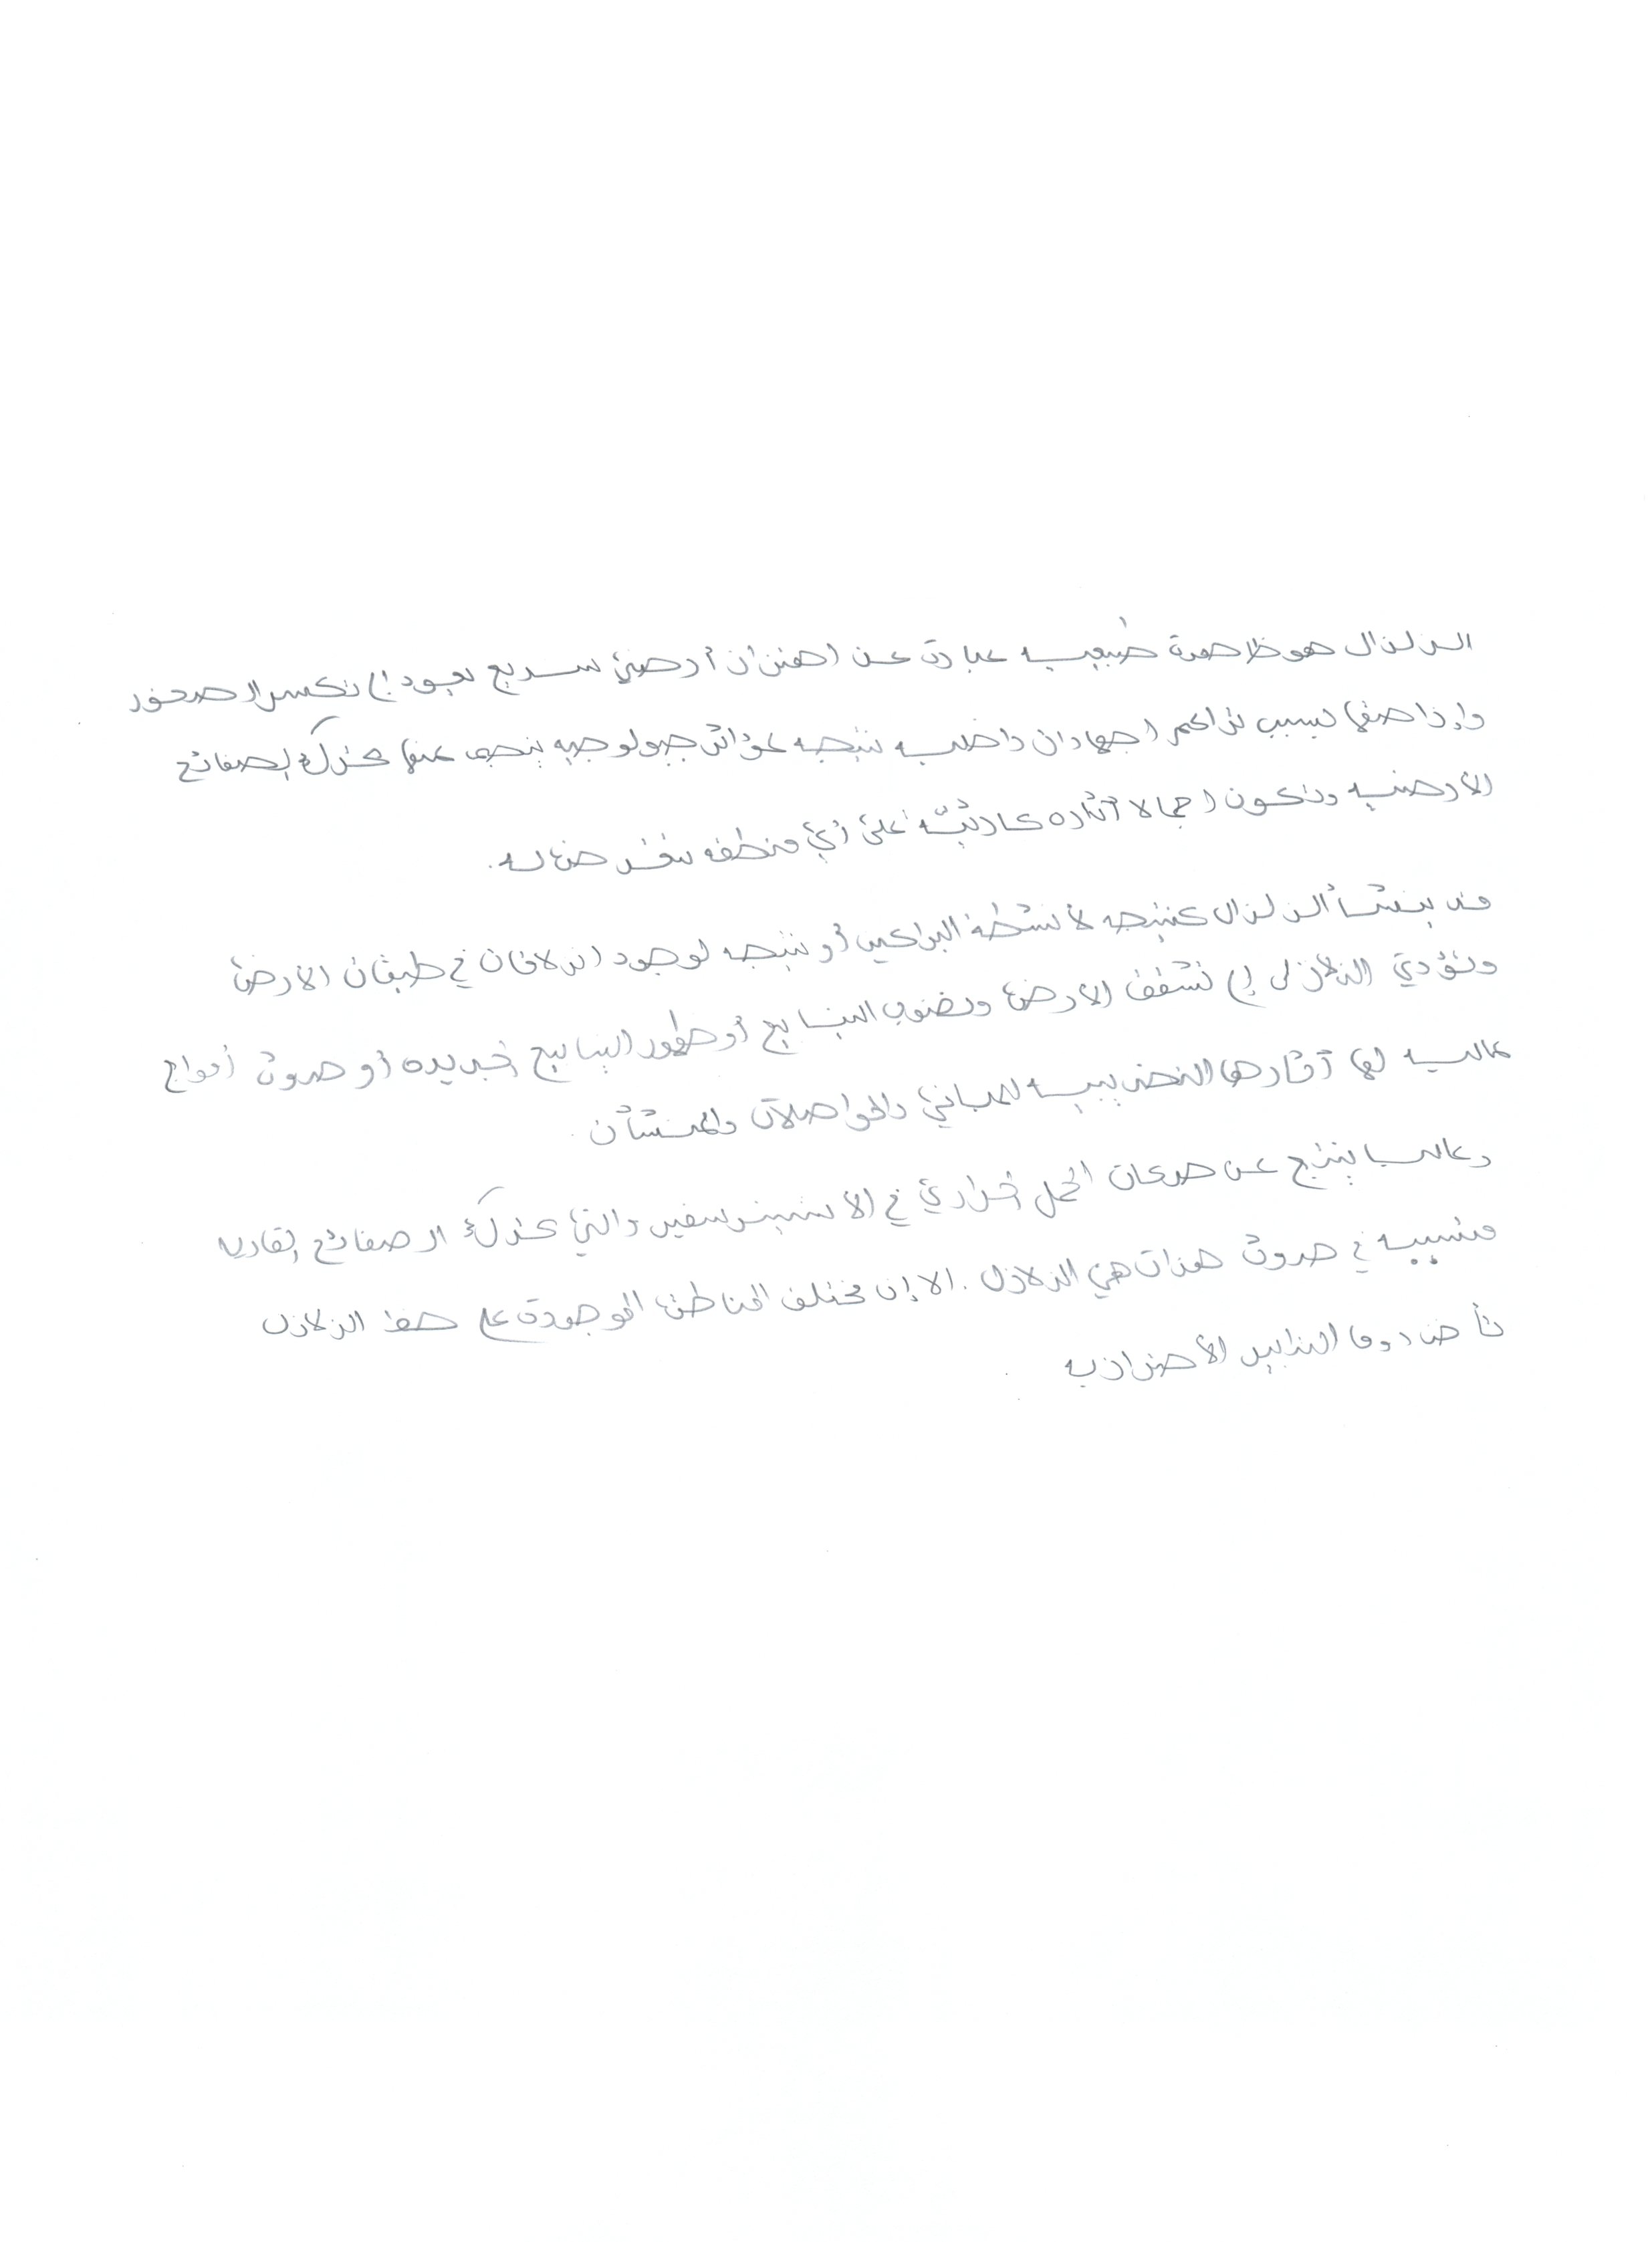 الزلزال هو ظاهرة طبيعيه عبارة عن اهتزاز أرضي سريع يعود إلى تكسر الصخور
وإزاحتها بسبب تراكم اجهادات داخليه نتيجه مؤاثرات جيولوجيه ينجم عنها تحرك الصفائح
الأرضيه وتكون اجمالا آثاره كارثيّه على أي منطقه تتعرض له.
قد ينشأ الزلزال كنتيجه لأنشطة البراكين أو نتيجه لوجود انزلاقات في طبقات الارض
وتؤدي الزلازل إلى تشقق الارض ونضوب الينابيع أو ظهور الينابيع الجديده أو حدوث أمواج
عاليه لها آثارها التخريبيه للمباني والمواصلات والمنشأت.
وغالبا ينتج عن حركات الحمل الحراري في الاستينوسفير والتي تحرك الصفائح القاريه
متسببه في حدوث هزات هي الزلازل. الا إن مختلف المناطق الموجودة على هذا الزلازل
تأخذ دوما التدابير الأحترازيه